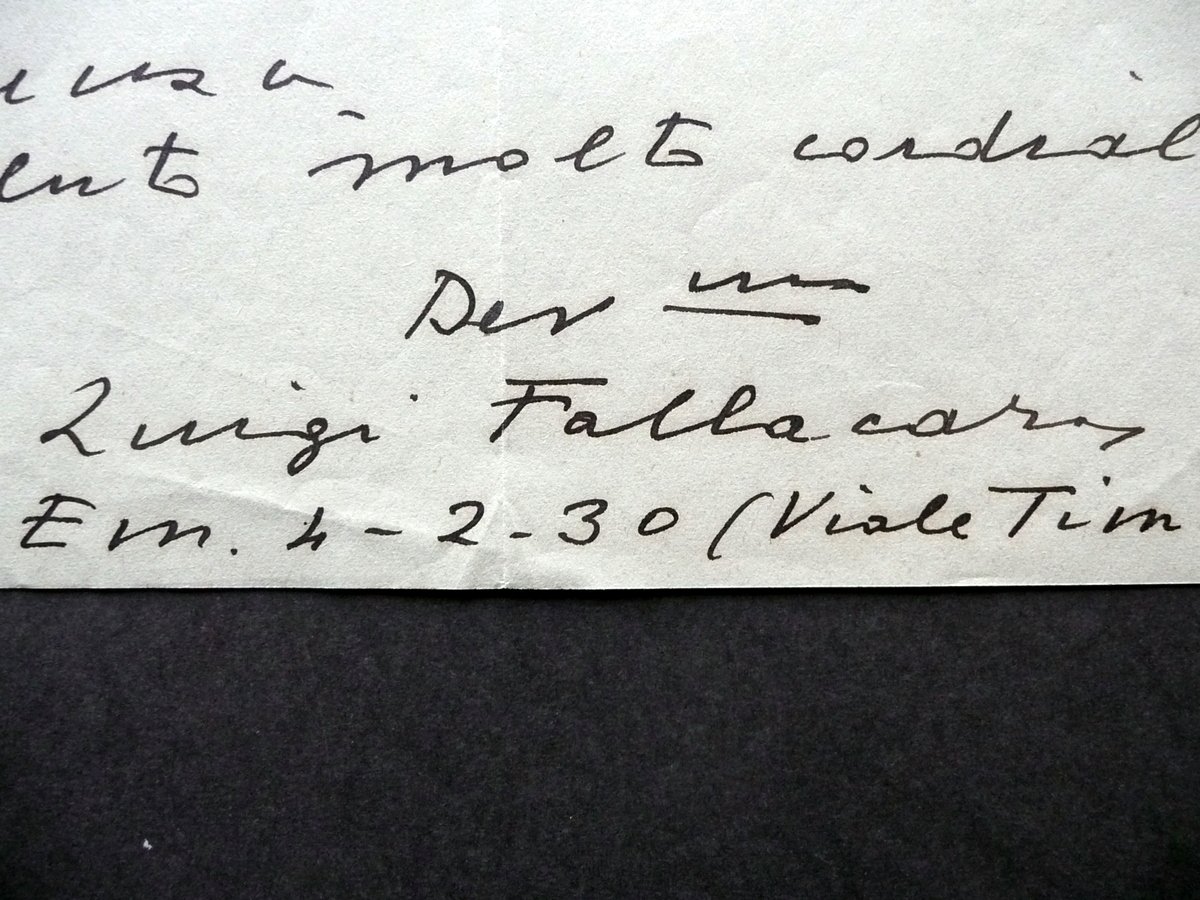 luto molto cordial
Dev mo
Luigi Fallacara
Em. 4-2-30 (Viale Tim